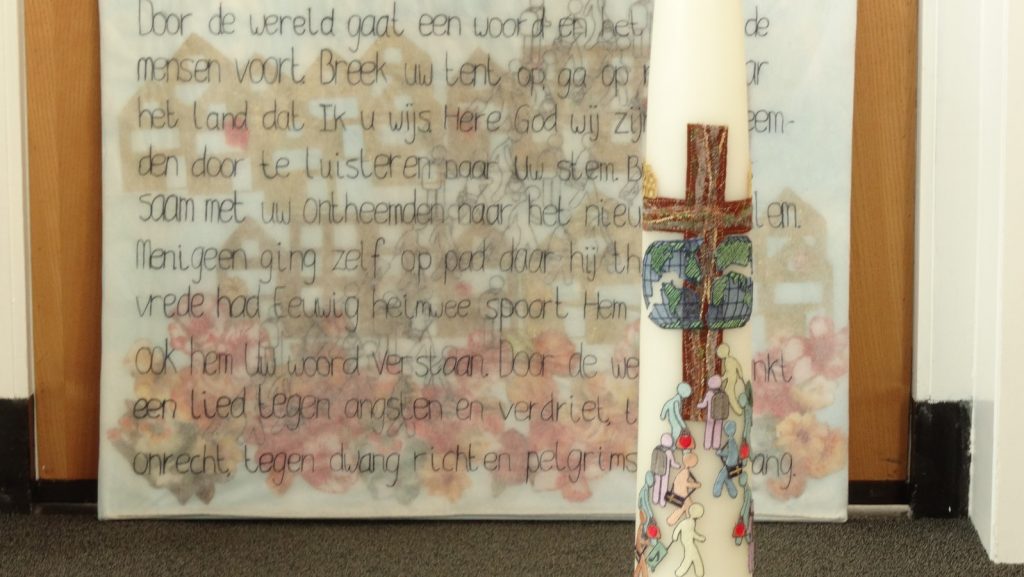 Door de wereld gaat een woord en het de
mensen voort. Breek uw tent op ga op
het land dat Ik u wijs. Here God wij
den door te luisteren naar Uw stem.
saam met uw ontheemden naar het
Menigeen ging zelf op pad daar hij
vrede had Eeuwig heimwee spoort Hem
ook hem Uw woord verstaan. Door de
een lied tegen angsten en verdriet,
onrecht, tegen dwang richten pelgrims